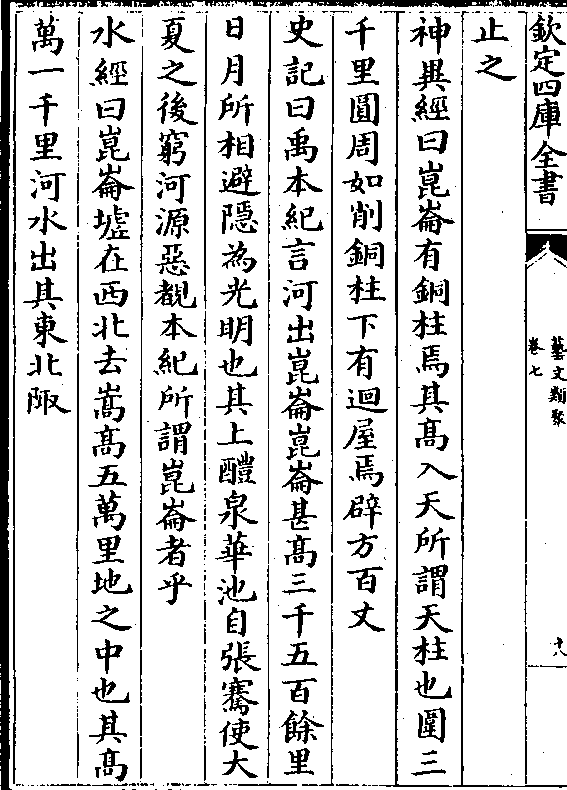 欽定四庫全書
藝文類聚
卷七
十八
止之
神異經曰崑崙有銅柱焉其髙入天所謂天柱也圍三
千里圓周如削銅柱下有迴屋焉辟方百丈
史記曰禹本紀言河出崑崙崑崙甚髙三千五百餘里
日月所相避隱為光明也其上醴泉華池自張騫使大
夏之後窮河源惡覩本紀所謂崑崙者乎
水經曰崑崙墟在西北去嵩髙五萬里地之中也其髙
萬一千里河水出其東北陬